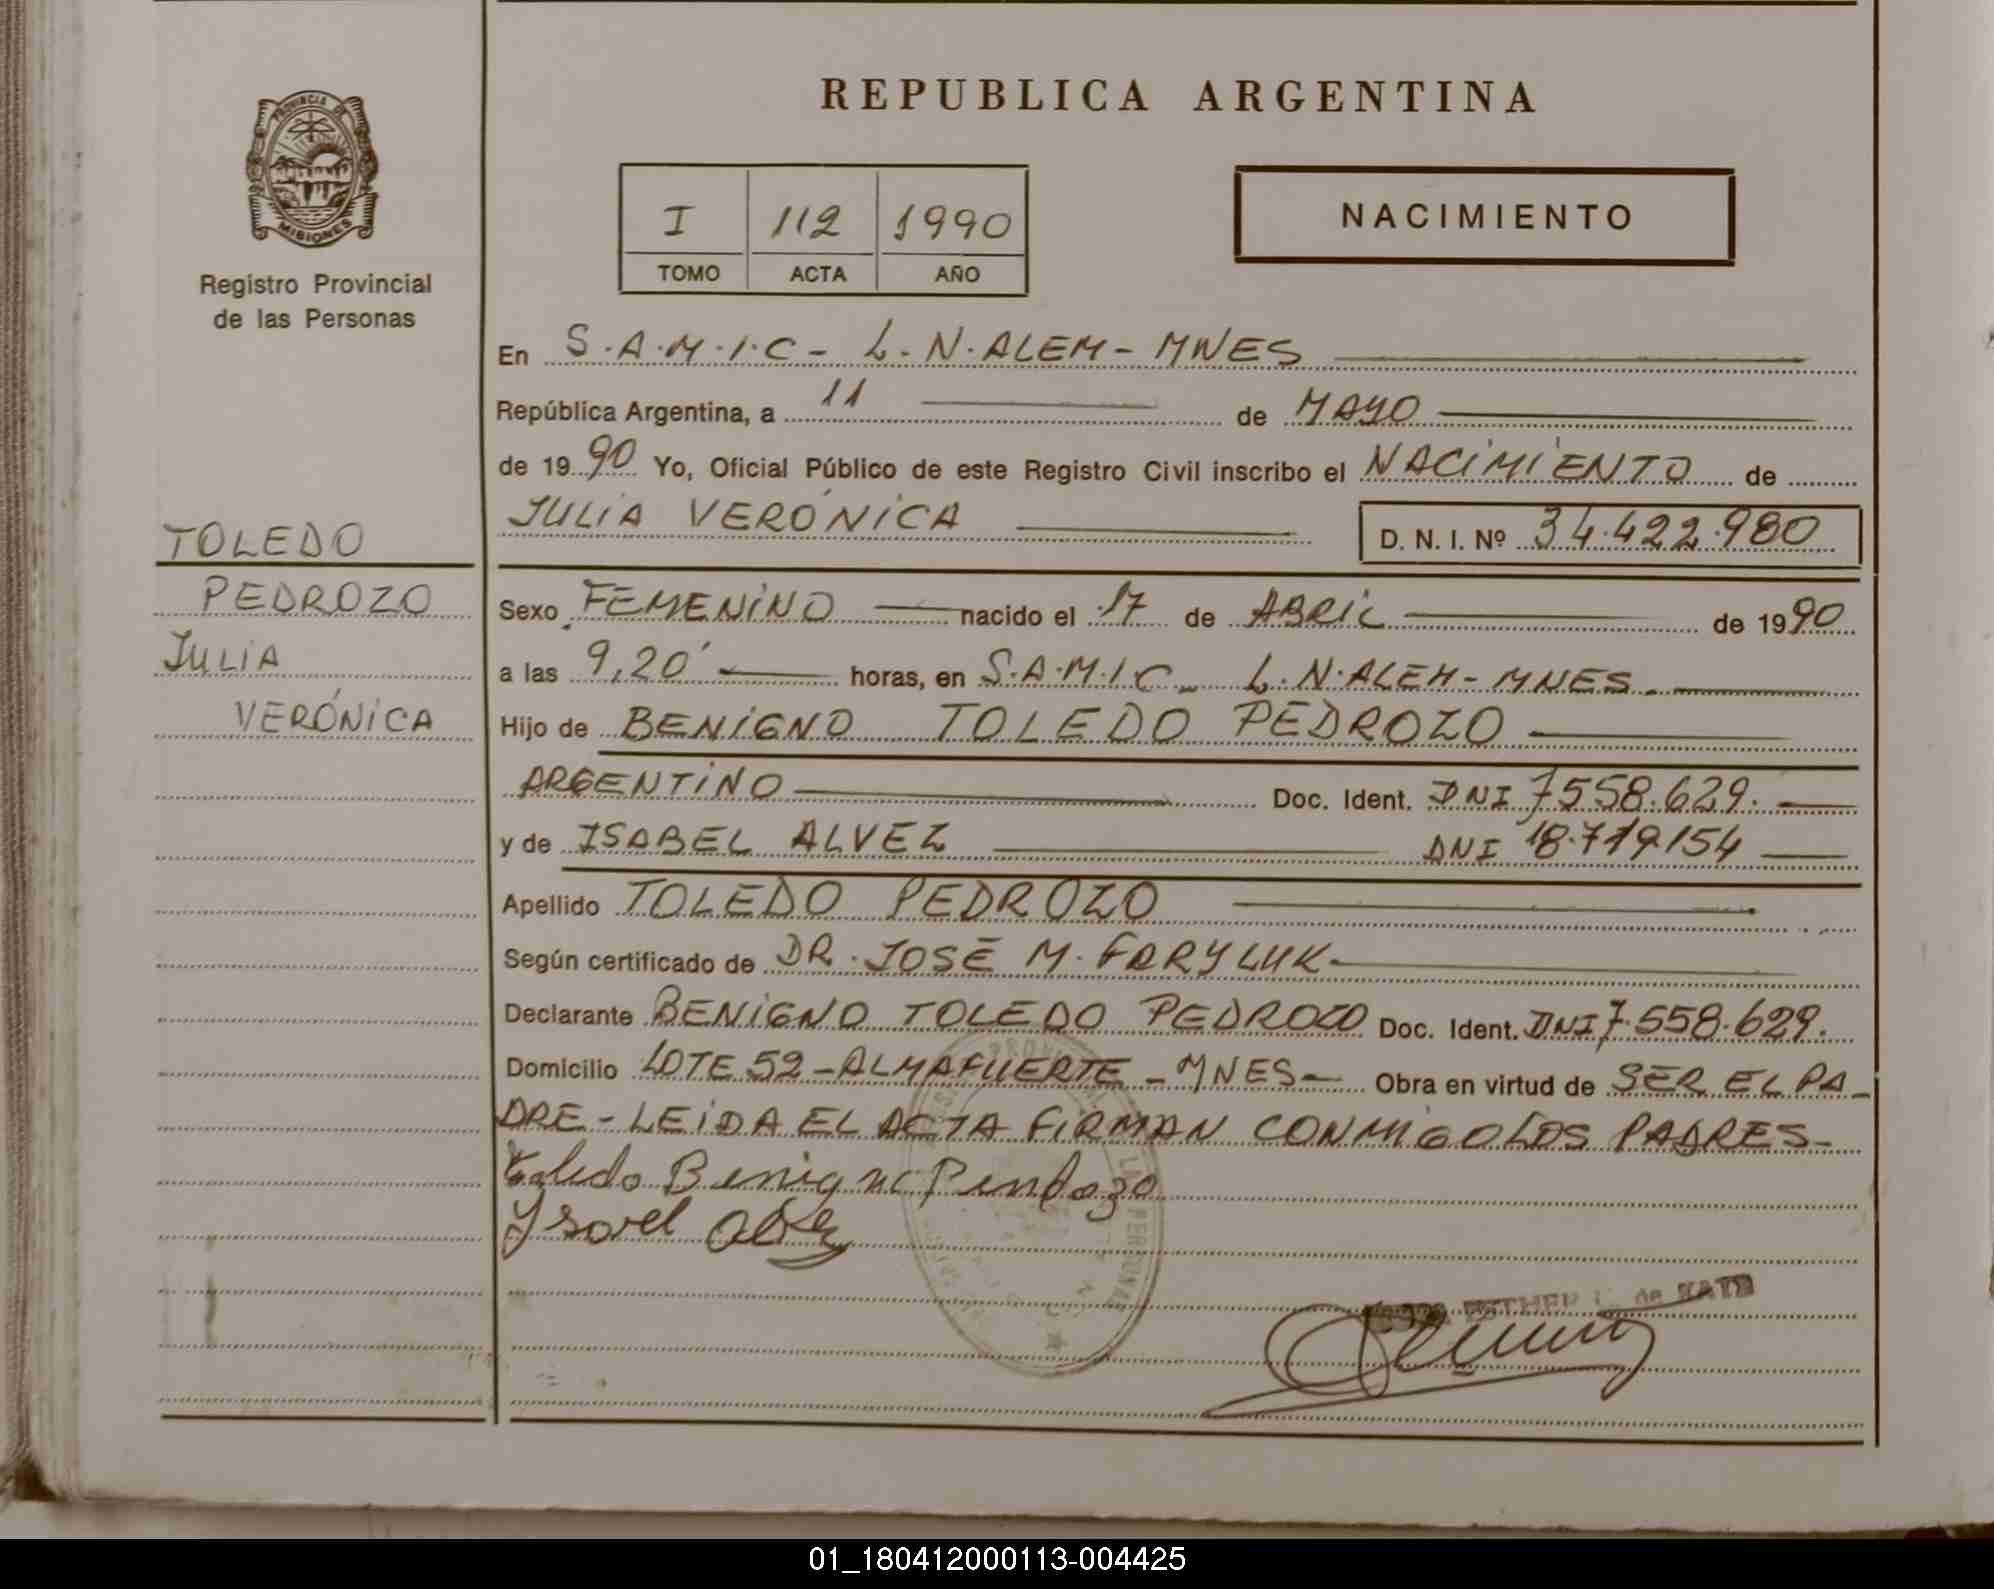 REPUBLICA ARGENTINA
PROVINCIA DE
MISIONES
Registro Provincial
de las Personas
I 112 1990
TOMO ACTA AÑO
NACIMIENTO
En S.A.M.I.C - L.N.ALEM - MNES
República Argentina, a 11 de MAYO
de 1990 Yo, Oficial Público de este Registro Civil inscribo el NACIMIENTO de
JULIA VERÓNICA D. N. I. Nº 34.422.980
TOLEDO
PEDROZO
JULIA
VERÓNICA
Sexo FEMENINO nacido el 17 de ABRIL de 1990
a las 9,20' horas, en S.A.M.I.C - L.N.ALEM - MNES.
Hijo de BENIGNO TOLEDO PEDROZO
ARGENTINO Doc. Ident. DNI 7558.629.
y de ISABEL ALVEZ DNI 18.719.154
Apellido TOLEDO PEDROZO
Según certificado de DR. JOSÉ M. FARYLUK
Declarante BENIGNO TOLEDO PEDROZO Doc. Ident. DNI 7.558.629.
Domicilio LOTE 52 - ALMAFUERTE - MNES - Obra en virtud de SER EL PA
DRE - LEIDA EL ACTA FIRMAN CONMIGO LOS PADRES -
Toledo Benigno
Ysavel
ESTHER de
01_180412000113-004425